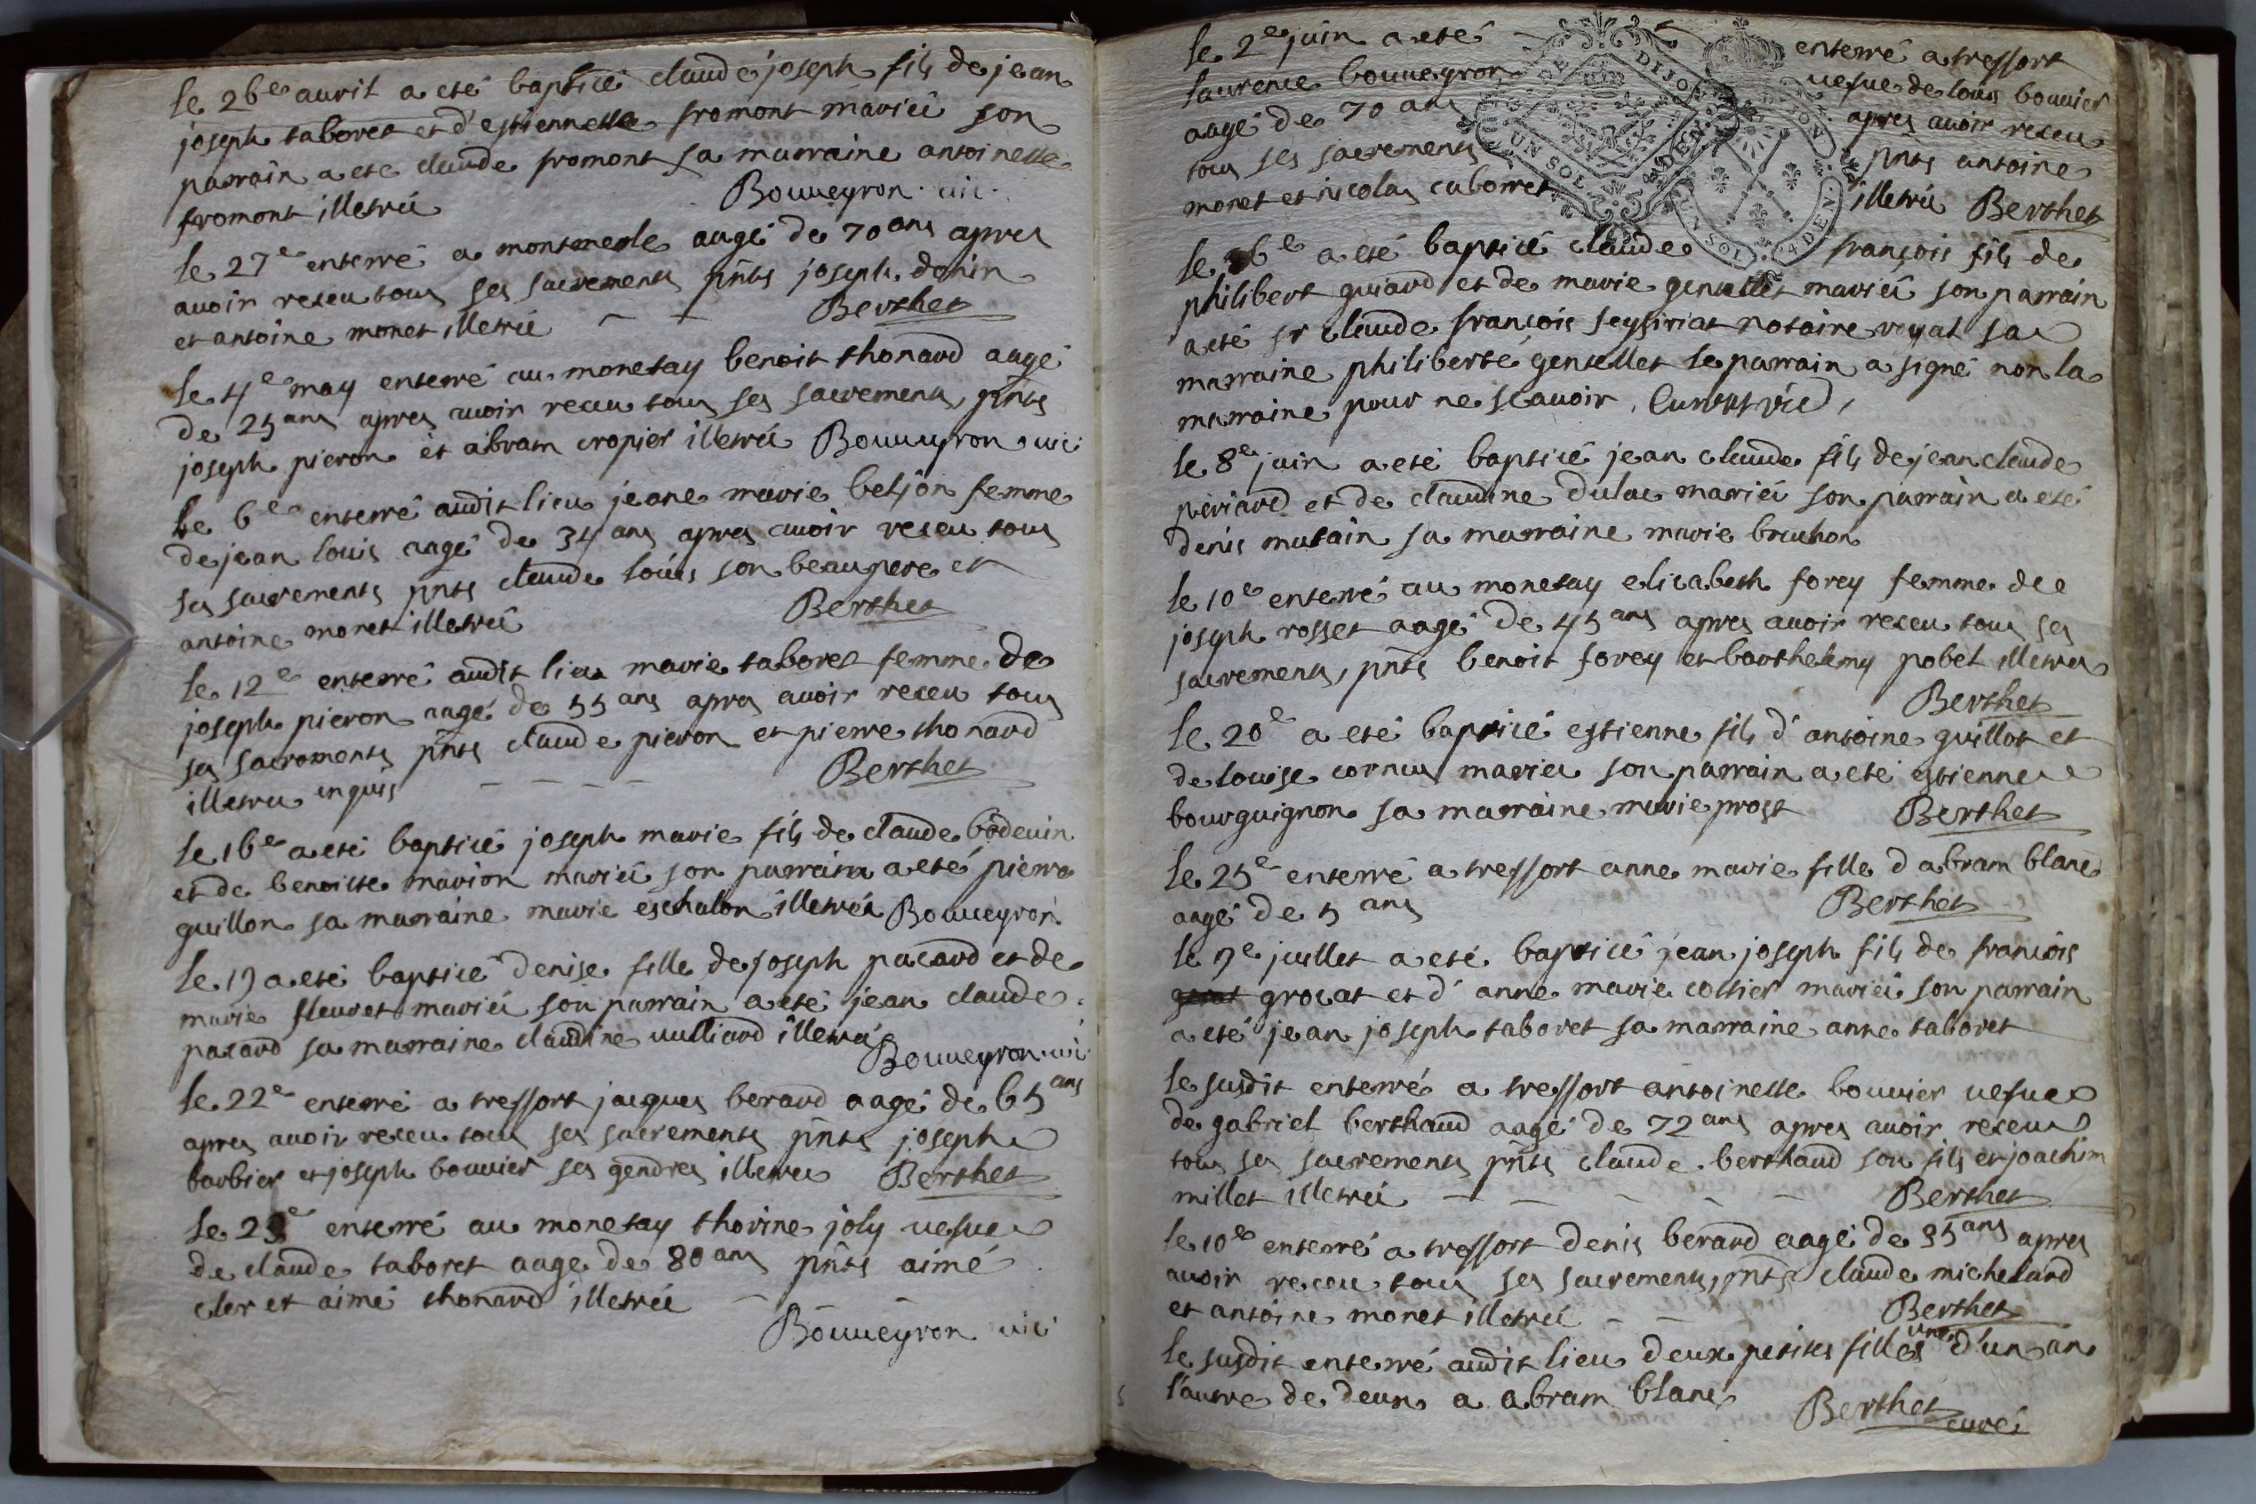 le 26e auril a eté baptisé claude joseph fils de jean
joseph taboret et d'estiennette fromont mariés son
parrain a eté claude fromont sa marraine antoinette
fromont illetrés Bouueyron vic.
le 27e enterré a montmerle aagé de 70 ans apres
auoir receu tous ses sacrements pnts joseph donin
et antoine monet illetrés Berthet
le 4e may enterré au monetay benoit thonard aagé
de 25 ans apres auoir receu tous ses sacrements, pnts
joseph pieron et abram cropier illetrés Bouueyron vic.
le 6e enterré audit lieu jeane marie beljon femme
de jean louis aagé de 34 ans apres auoir receu tous
ses sacrements pnts claude louis son beaupere et
antoine monet illetrés Berthet
le 12e enterré audit lieu marie taboret femme de
joseph pieron aagé de 55 ans apres auoir receu tous
ses sacrements pnts claude pieron et pierre thonard
illetrés enquis Berthet
le 16e a eté baptisé joseph marie fils de claude bodeuin
et de benoitte marion mariés son parrain a eté pierre
guillon sa marraine marie eschalon illetrés Bouueyron
le 19 a eté baptisé denise fille de joseph pacard et de
marie fleuret mariés son parrain a eté jean claude
pacard sa marraine claudine vulliard illetrés
Bouueyron vic.
le 22e enterré a tressort jacques berard aagé de 65 ans
apres auoir receu tous ses sacrements pnts joseph
barbier et joseph bouuier ses gendres illetrés Berthet
le 29e enterré au monetay thorine joly uefue
de claude taboret aagé de 80 ans pnts aimé
cler et aimé thonard illetrés
Bouueyron vic
le 2e juin a eté enterré a tressort
laurence bouueyron uefue de louis bouuier
aagé de 70 ans apres auoir receu
tous ses sacrements pnts antoine
monet et nicolas caborret illetrés Berthet
DE DIJON
UN SOL 4 DEN.
DIJON
UN SOL 4 DEN.
le 6e a eté baptisé claude françois fils de
philibert guiard et de marie gentellet mariés son parrain
a eté sr claude françois seyssiriat notaire royal sa
marraine philiberte gentellet le parrain a signé non la
marraine pour ne scauoir,
le 8e juin a eté baptisé jean claude fils de jean claude
periard et de claudine dulac mariés son parrain a eté
denis mutain sa marraine marie bruchon
le 10e enterré au monetay elisabeth forey femme de
joseph rosset aagé de 45 ans apres auoir receu tous ses
sacrements, pnts benoit forey et barthelemy pobel illetrés
Berthet
le 20e a eté baptisé estienne fils d'antoine guillot et
de louise cornus mariés son parrain a eté estienne
bourguignon sa marraine marie prost Berthet
le 25e enterré a tressort anne marie fille d'abram blanc
aagé de 5 ans Berthet
le 9e juillet a eté baptisé jean joseph fils de françois
grocat et d'anne marie cottier mariés son parrain
a eté jean joseph taboret sa marraine anne taboret
le susdit enterré a tressort antoinette bouuier uefue
de gabriel berthaud aagé de 72 ans apres auoir receu
tous ses sacrements pnts claude berthaud son fils et joachim
millet illetrés Berthet
le 10e enterré a tressort denis berard aagé de 35 ans apres
auoir receu tous ses sacrements, pnts claude michelard
et antoine monet illetrés Berthet
le susdit enterré audit lieu deux petites filles une d'un an
l'autre de deux a abram blanc Berthet curé